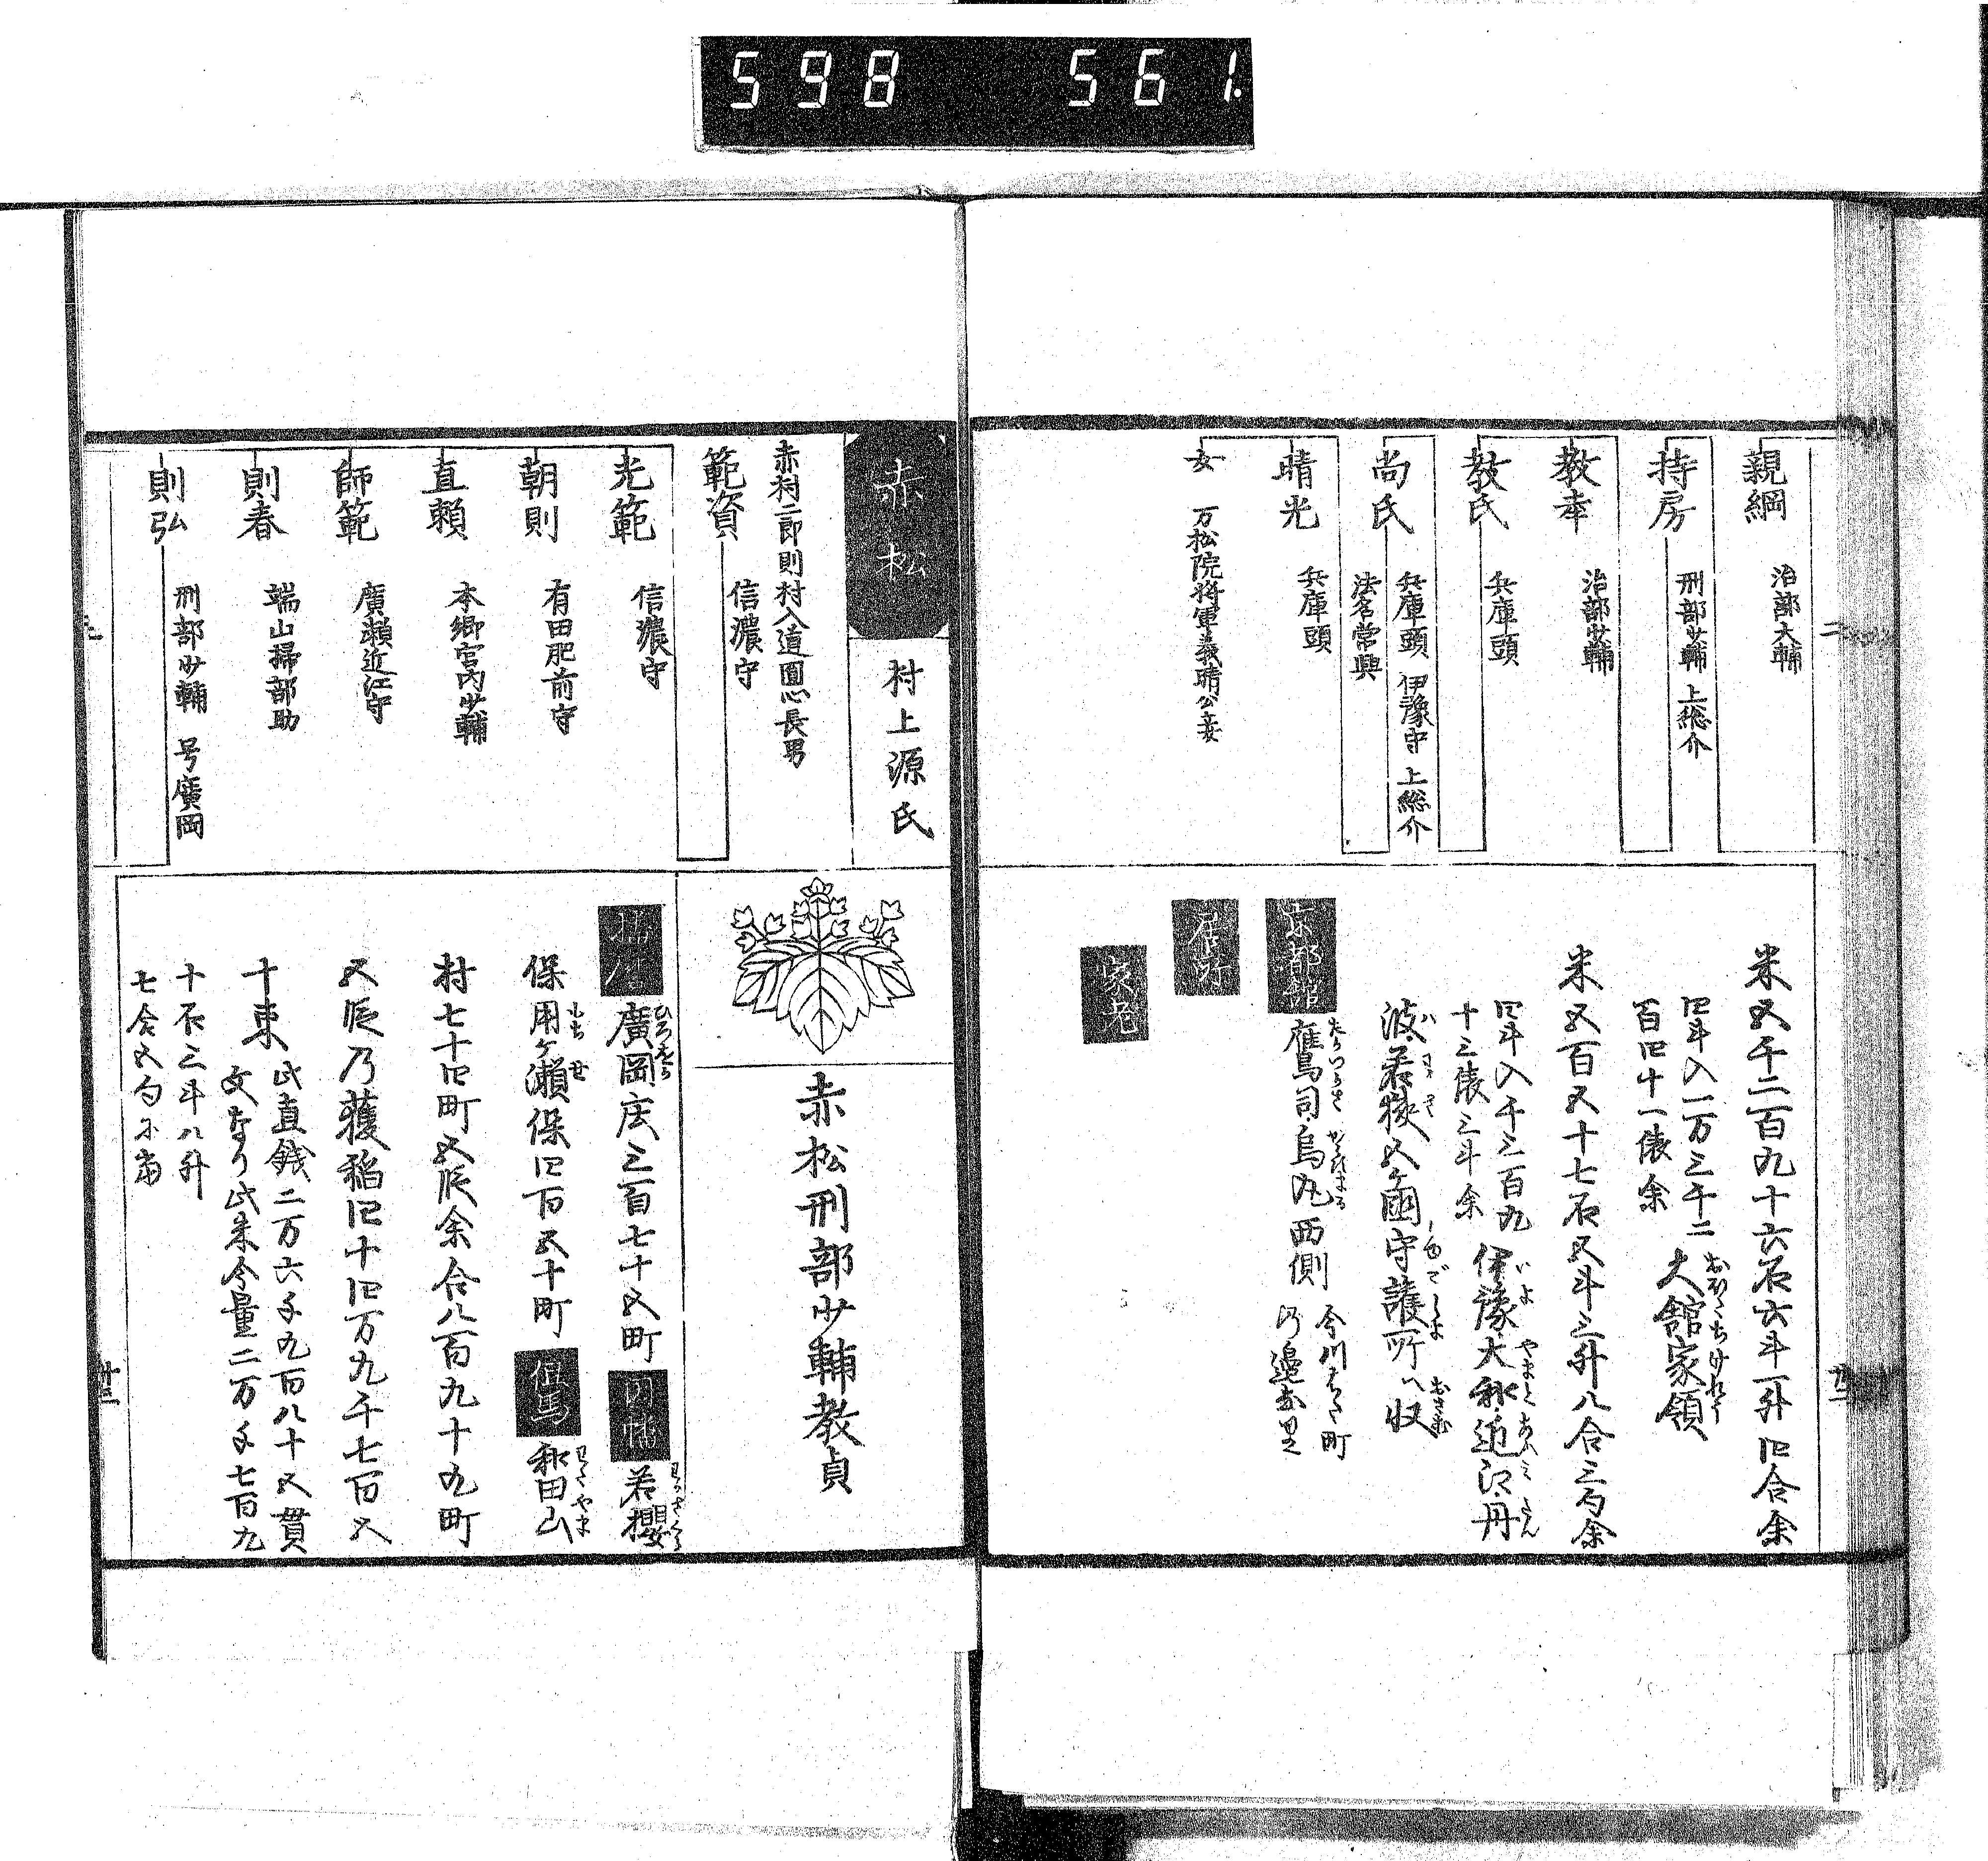 598 561.
二
親綱 治部大輔
持房 刑部少輔 上総介
教幸 治部少輔
教氏 兵庫頭
尚氏 兵庫頭 伊豫守 上総介
法名常興
晴光 兵庫頭
女 万松院将軍義晴公妾
米五千二百九十六石六斗一升四合余
四斗入一万三千二
百四十一俵余
大舘家領
米五百五十七石五斗三升八合三勺余
四斗入千三百九
十三俵三斗余
伊豫大和近江丹
波若狭五ヶ國守護所ハ収
京都舘 鷹司烏丸西側
居所
家老
赤松 村上源氏
赤松二郎則村入道圓心長男
範資 信濃守
光範 信濃守
朝則 有田肥前守
直頼 本郷宮内少輔
師範 廣瀬近江守
則春 端山掃部助
則弘 刑部少輔 号廣岡
赤松刑部少輔教貞
廣岡庄三百七十五町 因幡 若櫻
保用ヶ瀬保四百五十町 但馬 和田山
村七十四町五段余合八百九十九町
五段乃穫稲四十四万九千七百五
十束
此直銭二万六千九百八十五貫
文なり此米今量二万千七百九
十石三斗八升
七合五勺